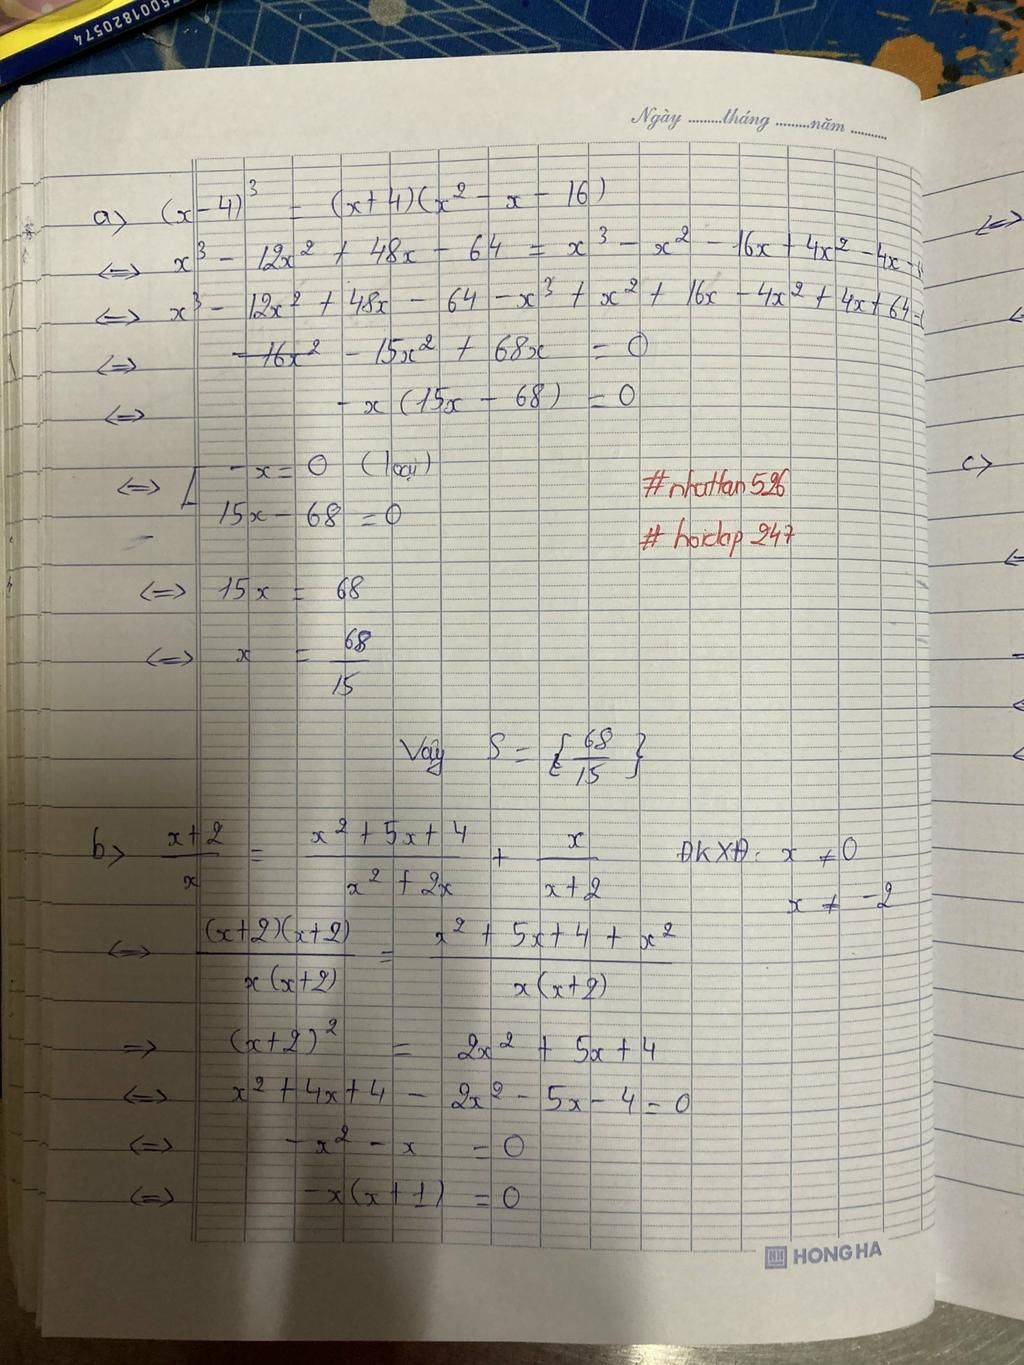 75001820574
Ngày .........tháng .........năm ..........
a> (x-4)³ = (x+4)(x² - x - 16)
<=> x³ - 12x² + 48x - 64 = x³ - x² - 16x + 4x² - 4x -
<=> x³ - 12x² + 48x - 64 - x³ + x² + 16x - 4x² + 4x + 64 =
<=> -16x² - 15x² + 68x = 0
<=> -x (15x - 68) = 0
<=> [ -x = 0 (loại)
15x - 68 = 0
#nhattan526
# hoidap 247
<=> 15x = 68
<=> x = 68/15
Vậy S = { 68/15 }
b> (x+2)/x = (x² + 5x + 4)/(x² + 2x) + x/(x+2) ĐKXĐ: x ≠ 0
x ≠ -2
<=> (x+2)(x+2)/x(x+2) = (x² + 5x + 4 + x²)/x(x+2)
=> (x+2)² = 2x² + 5x + 4
<=> x² + 4x + 4 - 2x² - 5x - 4 = 0
<=> -x² - x = 0
<=> -x(x+1) = 0
HONG HA
c>